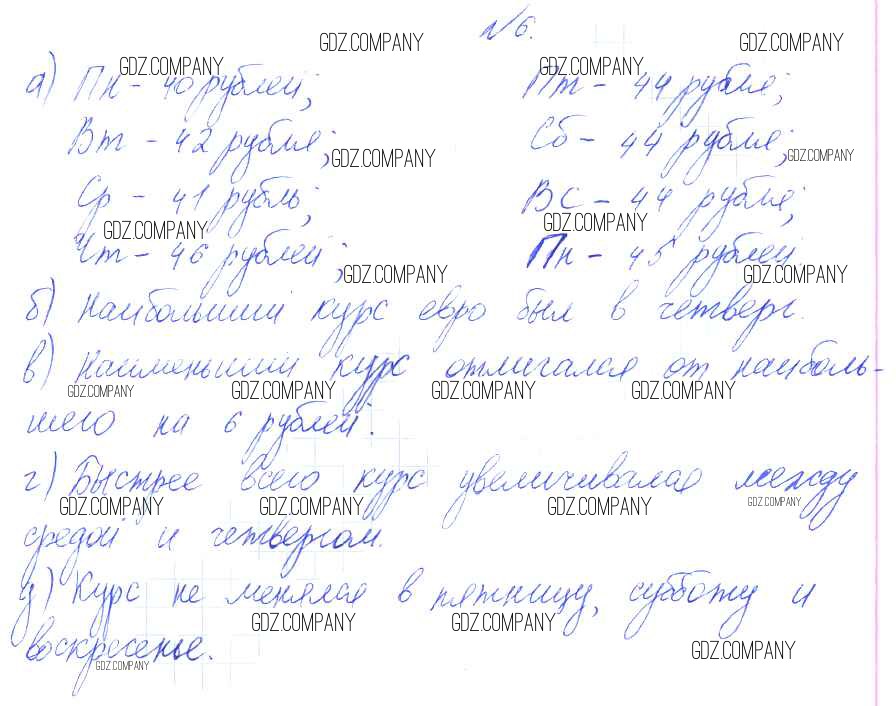 №6.
а) Пн - 40 рублей; Пт - 44 рубля;
Вт - 42 рубля; Сб - 44 рубля;
Ср - 41 рубль; Вс - 44 рубля;
Чт - 46 рублей; Пн - 45 рублей.
б) Наибольший курс евро был в четверг.
в) Наименьший курс отличался от наиболь-
шего на 6 рублей.
г) Быстрее всего курс увеличивался между
средой и четвергом.
д) Курс не менялся в пятницу, субботу и
воскресенье.
GDZ.COMPANY GDZ.COMPANY
GDZ.COMPANY GDZ.COMPANY
GDZ.COMPANY GDZ.COMPANY
GDZ.COMPANY GDZ.COMPANY
GDZ.COMPANY GDZ.COMPANY
GDZ.COMPANY GDZ.COMPANY GDZ.COMPANY GDZ.COMPANY
GDZ.COMPANY GDZ.COMPANY GDZ.COMPANY GDZ.COMPANY
GDZ.COMPANY GDZ.COMPANY
GDZ.COMPANY GDZ.COMPANY